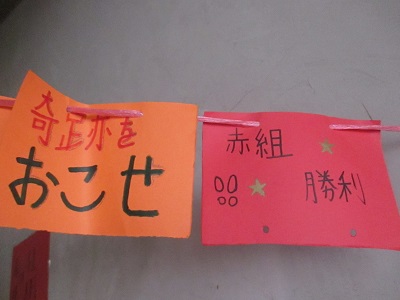 奇跡を
おこせ
赤組
勝利